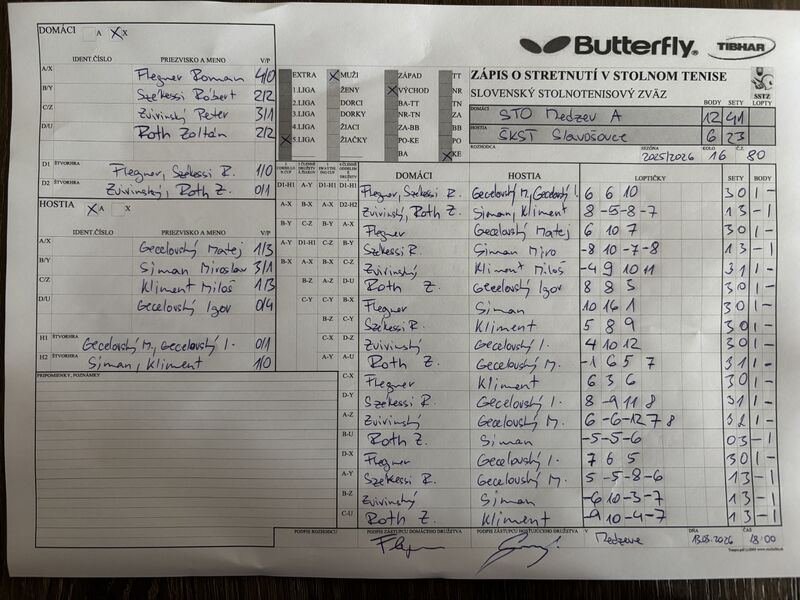 DOMÁCI A X X
IDENT.ČÍSLO PRIEZVISKO A MENO V/P
A/X Flegner Roman 4/0
B/Y Szekessi Róbert 2/2
C/Z Zvirinský Peter 3/1
D/U Roth Zoltán 2/2
D1 ŠTVORHRA Flegner, Szekessi R. 1/0
D2 Zvirinský, Roth Z. 0/1
HOSTIA X A X
IDENT.ČÍSLO PRIEZVISKO A MENO V/P
A/X Gecelovský Matej 1/3
B/Y Siman Miroslav 3/1
C/Z Kliment Miloš 1/3
D/U Gecelovský Igor 0/4
H1 ŠTVORHRA Gecelovský M., Gecelovský I. 0/1
H2 ŠTVORHRA Siman, Kliment 1/0
PRIPOMIENKY, POZNÁMKY
EXTRA X MUŽI ZÁPAD TT
1.LIGA ŽENY X VÝCHOD NR
2.LIGA DORCI BA-TT TN
3.LIGA DORKY NR-TN ZA
4.LIGA ŽIACI ZA-BB BB
X 5.LIGA ŽIAČKY PO-KE PO
BA X KE
Butterfly TIBHAR
ZÁPIS O STRETNUTÍ V STOLNOM TENISE
SLOVENSKÝ STOLNOTENISOVÝ ZVÄZ
SSTZ
BODY SETY LOPTY
DOMÁCI STO Medzev A 12 41
HOSTIA ŠKST Slavošovce 6 23
ROZHODCA SEZÓNA 2025/2026 KOLO 16 Č.Z. 80
DOMÁCI HOSTIA LOPTIČKY SETY BODY
D1-H1 A-Y D1-H1 D1-H1 Flegner, Szekessi R. Gecelovský M., Gecelovský I. 6 6 10 3 0 1 -
A-X B-X D2-H2 Zvirinský, Roth Z. Siman, Kliment 8 -5 -8 -7 1 3 - 1
B-Y C-Z A-X Flegner Gecelovský Matej 6 10 7 3 0 1 -
A-Y D1-H1 C-Z B-Y Szekessi R. Siman Miro -8 10 -7 -8 1 3 - 1
B-X A-X A-X C-Z Zvirinský Kliment Miloš -4 9 10 11 3 1 1 -
B-Z A-Z D-U Roth Z. Gecelovský Igor 8 8 5 3 0 1 -
C-Y C-Y B-X Flegner Siman 10 16 1 3 0 1 -
B-Z C-Y Szekessi R. Kliment 5 8 9 3 0 1 -
C-X D-Z Zvirinský Gecelovský I. 4 10 12 3 0 1 -
A-Y A-U Roth Z. Gecelovský M. -1 6 5 7 3 1 1 -
C-X Flegner Kliment 6 3 6 3 0 1 -
D-Y Szekessi R. Gecelovský I. 8 -9 11 8 3 1 1 -
A-Z Zvirinský Gecelovský M. 6 -6 -12 7 8 3 2 1 -
B-U Roth Z. Siman -5 -5 -6 0 3 - 1
D-X Flegner Gecelovský I. 7 6 5 3 0 1 -
A-Y Szekessi R. Gecelovský M. 5 -5 -8 -6 1 3 - 1
B-Z Zvirinský Siman -6 10 -3 -7 1 3 - 1
C-U Roth Z. Kliment -9 10 -4 -7 1 3 - 1
PODPIS ROZHODCU PODPIS ZÁSTUPCU DOMÁCEHO DRUŽSTVA PODPIS ZÁSTUPCU HOSŤUJÚCEHO DRUŽSTVA V Medzeve DŇA 13.03.2026 ČAS 18:00